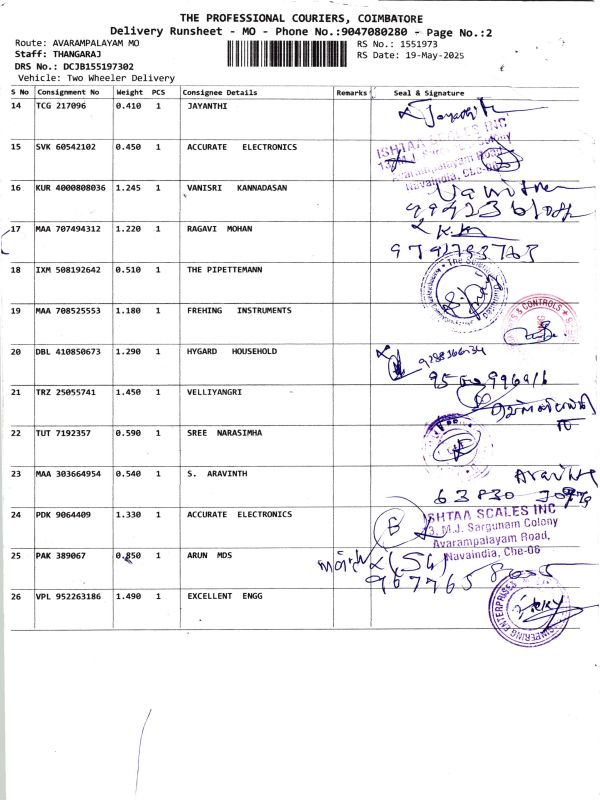 THE PROFESSIONAL COURIERS, COIMBATORE
Delivery Runsheet - MO - Phone No.:9047080280 - Page No.:2
Route: AVARAMPALAYAM MO RS No.: 1551973
Staff: THANGARAJ RS Date: 19-May-2025
DRS No.: DCJB155197302
Vehicle: Two Wheeler Delivery
S No Consignment No Weight PCS Consignee Details Remarks Seal & Signature
14 TCG 217096 0.410 1 JAYANTHI
15 SVK 60542102 0.450 1 ACCURATE ELECTRONICS
ISHTAA SCALES INC
Avarampalayam Road,
Navaindia, Che-06
16 KUR 4000808036 1.245 1 VANISRI KANNADASAN
17 MAA 707494312 1.220 1 RAGAVI MOHAN
18 IXM 508192642 0.510 1 THE PIPETTEMANN
19 MAA 708525553 1.180 1 FREHING INSTRUMENTS
& CONTROLS
20 DBL 410850673 1.290 1 HYGARD HOUSEHOLD
21 TRZ 25055741 1.450 1 VELLIYANGRI
22 TUT 7192357 0.590 1 SREE NARASIMHA
23 MAA 303664954 0.540 1 S. ARAVINTH
24 PDK 9064409 1.330 1 ACCURATE ELECTRONICS
ISHTAA SCALES INC
13, M.J. Sargunam Colony
Avarampalayam Road,
Navaindia, Che-06
25 PAK 389067 0.850 1 ARUN MDS
26 VPL 952263186 1.490 1 EXCELLENT ENGG